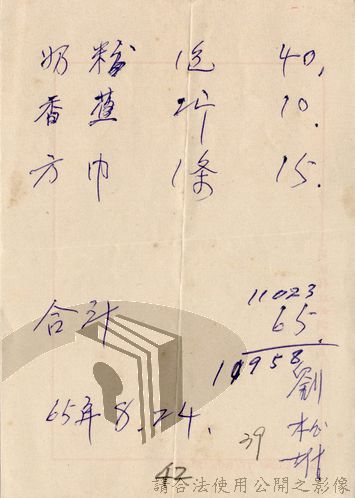 奶粉 1包 40.
香蕉 2斤 10.
方巾 1條 15.
11023
合計 65.
10958
65年8.24.
39
42
請合法使用公開之影像